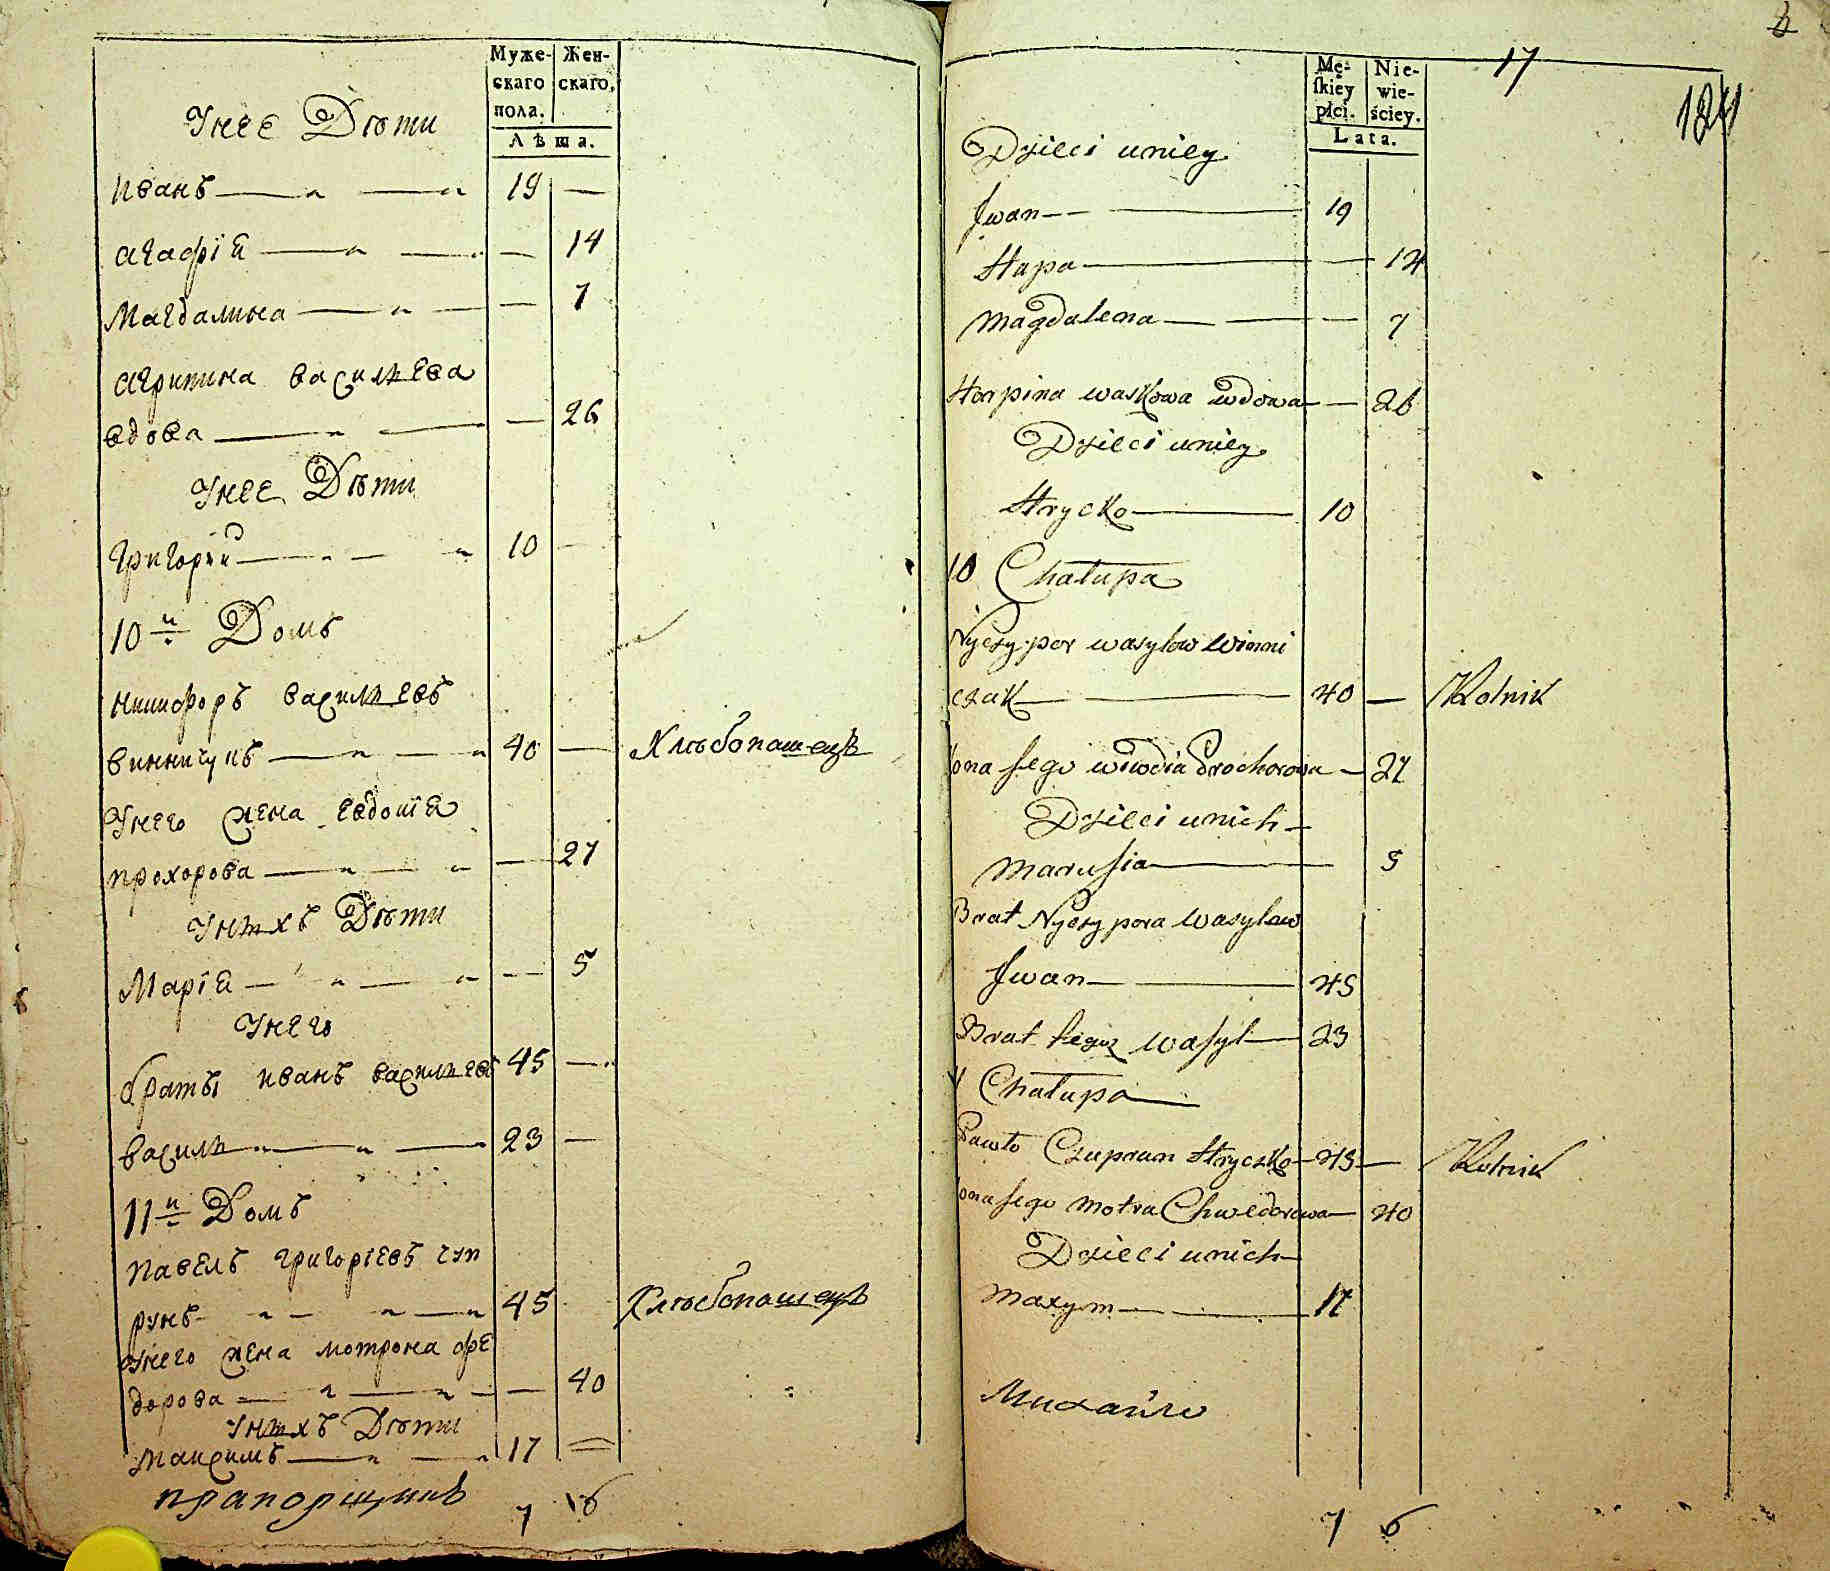 Муже-
скаго
пола.
Жен-
скаго,
Лѣта.
У нее Дѣти
Иванъ 19 —
агафіѧ — 14
Магдалина — 7
агрипина васильева
вдова — 26
У нее Дѣти
григорий 10 —
10й Домъ
никифоръ васильевъ
винничукъ 40 — Хлѣбопашецъ
У него жена евдокіѧ
прохорова — 27
У нихъ Дѣти
Маріѧ — 5
У него
братьѧ иванъ васильевъ 45 —
василь 23 —
11й Домъ
павелъ григоріевъ чуп
рунъ 45 Хлѣбопашецъ
У него жена мотрона фе
дорова — 40
У нихъ Дѣти
максимъ 17 =
прапорщикъ
7 6
17
184
Mę-
skiey
płci.
Nie-
wie-
ściey.
Lata.
Dzieci u niey
Jwan 19
Hapa — 14
Magdalena — 7
Horpina waskowa wdowa — 26
Dzieci u niey
Hrycko 10
10 Chałupa
Nyczypor wasylow winni
czuk 40 — Rolnik
żona Jego wiwdia Prochorowa — 27
Dzieci u nich
Marusia 5
Brat Nyczypora wasylow
Jwan 45
Brat Jegoż wasyl 23
Chałupa
Pawło Czuprun Hryczko 45 — Rolnik
żona Jego Motra Chwedorowa 40
Dzieci u nich
Maxym 17
Михайло
7 6